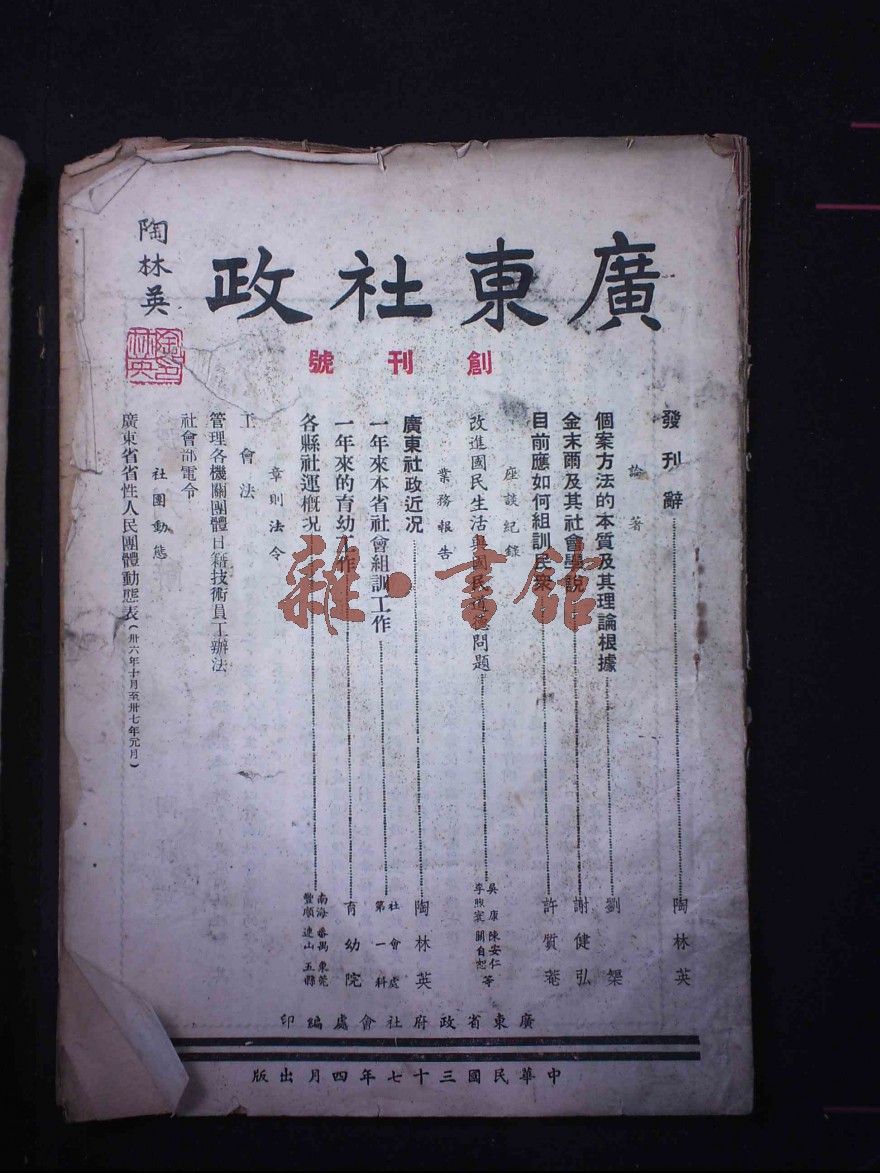 廣東社政
陶林英
創刊號
發刊辭
陶林英
論著
個案方法的本質及其理論根據
劉榘
金末爾及其社會學說
謝健弘
目前應如何組訓民衆
許質菴
座談紀錄
改進國民生活與國民道德問題
吳康 陳安仁 等
業務報告
廣東社政近况
陶林英
一年來本省社會組訓工作
社會處
第一科
一年來的育幼工作
育幼院
各縣社運概况
南海 番禺 東莞
豐順 連山 五縣
章則法令
工會法
管理各機關團體日籍技術員工辦法
社會部電令
社團動態
廣東省省性人民團體動態表(卅六年十月至卅七年元月)
廣東省政府社會處編印
中華民國三十七年四月出版
雜·書館